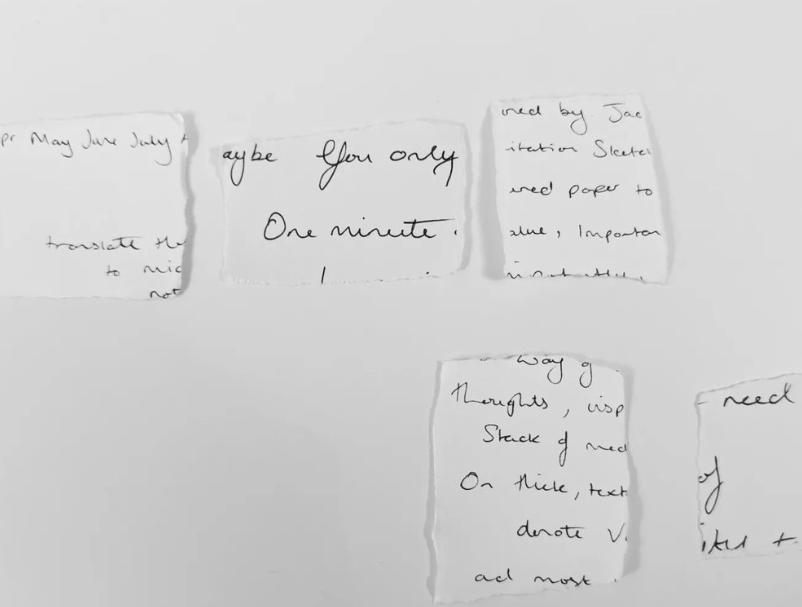 pr May June July
translate the
to mic
not
aybe You only
One minute.
ined by Jac
itation Sketch
ured paper to
alue, Importan
way of
thoughts, visp
Stack of med
On thick, text
denote V.
ad most
need
of
iked t